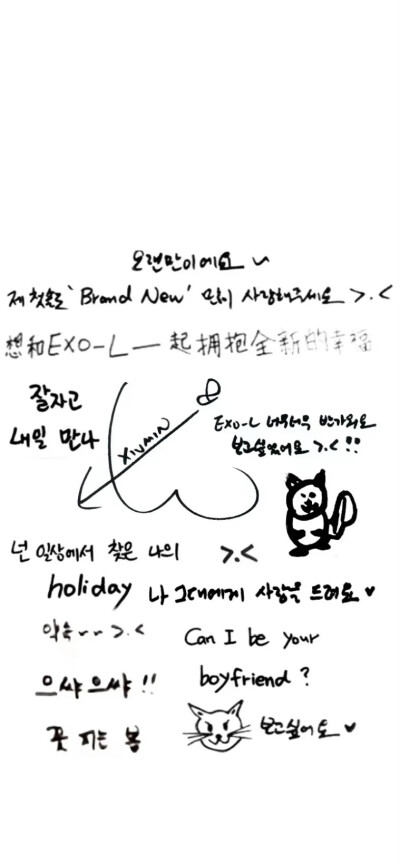 오랜만이에요~
제 첫솔로 'Brand New' 많이 사랑해주세요 >.<
想和EXO-L一起拥抱全新的幸福
잘자고
내일 만나
XIUMIN
EXO-L 너무너무 반가워요
보고싶었어요 >.< !!
넌 일상에서 찾은 나의
holiday
>.<
나 그대에게 사랑을 드려요 ♥
약속~~ >.<
Can I be your
boyfriend?
으쌰으쌰!!
꽃 피는 봄
보고싶어요 ♥